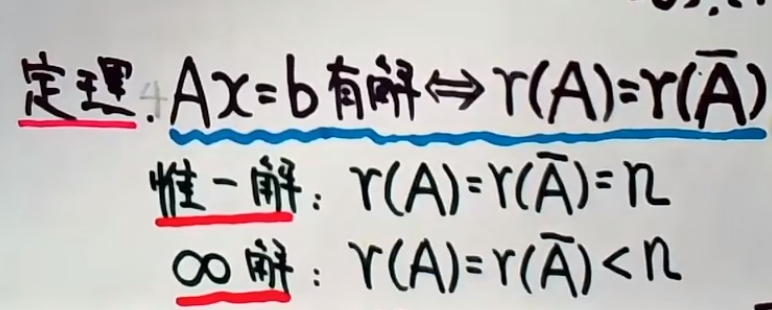 定理. Ax=b有解⇔r(A)=r(A̅)
惟一解: r(A)=r(A̅)=n
∞解: r(A)=r(A̅)<n